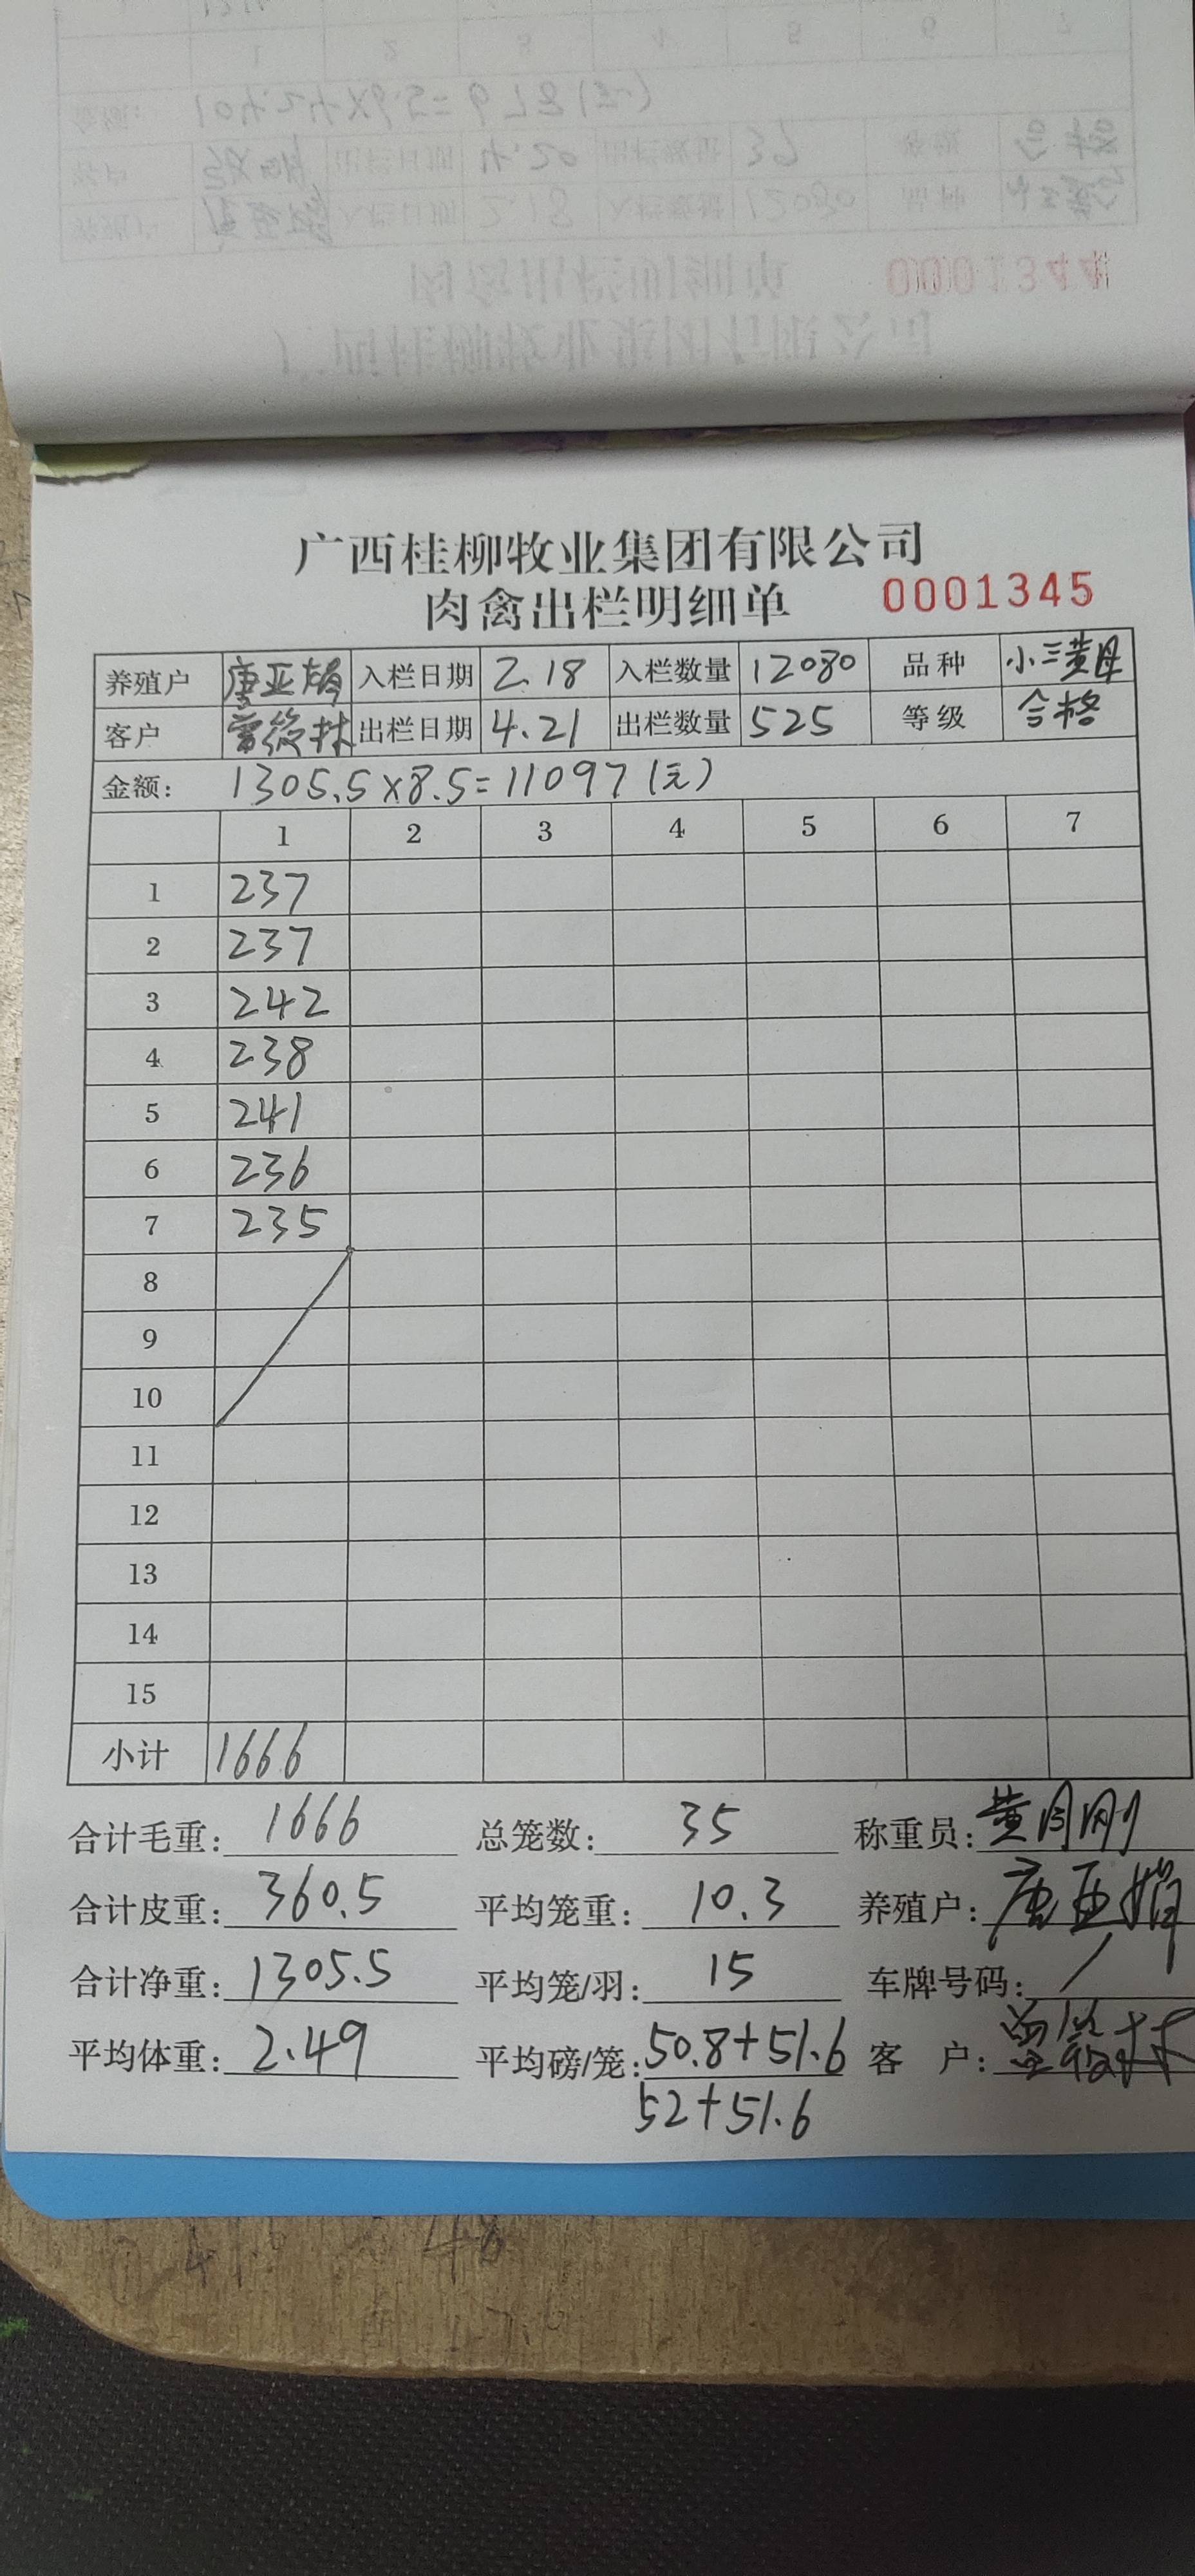 广西桂柳牧业集团有限公司
肉禽出栏明细单 0001345
养殖户 唐亚娟 入栏日期 2.18 入栏数量 12080 品种 小三黄母
客户 林 出栏日期 4.21 出栏数量 525 等级 合格
金额： 1305.5×8.5=11097(元)
1 2 3 4 5 6 7
1 237
2 237
3 242
4 238
5 241
6 236
7 235
8
9
10
11
12
13
14
15
小计 1666
合计毛重： 1666 总笼数： 35 称重员： 黄月刚
合计皮重： 360.5 平均笼重： 10.3 养殖户： 唐亚娟
合计净重： 1305.5 平均笼/羽： 15 车牌号码： /
平均体重： 2.49 平均磅/笼： 50.8+51.6 客 户： 林
52+51.6